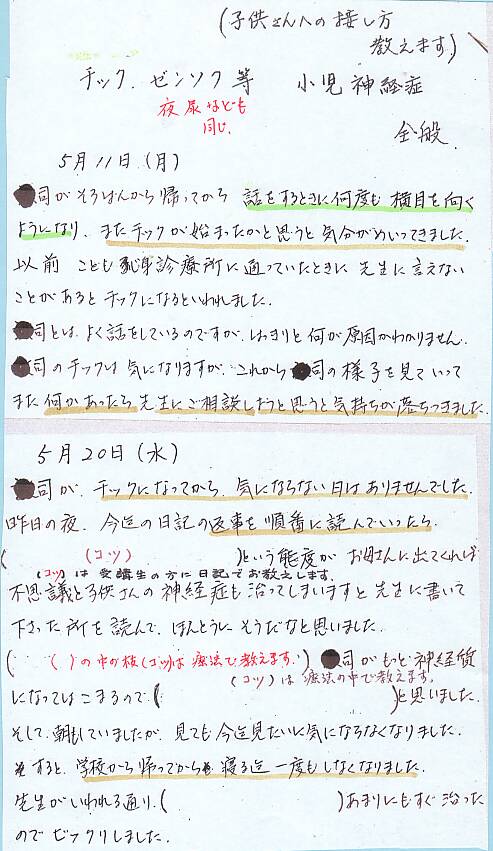 (子供さんへの接し方
教えます)
チック、ゼンソク等 小児神経症
夜尿なども
同じ.
全般
5月11日(月)
司がそろばんから帰ってから 話をするときに何度も横目を向く
ようになり、またチックが始まったかと思うと気分がめいってきました.
以前 こども心身診療所に通っていたときに先生に言えない
ことがあるとチックになるといわれました.
司とは、よく話をしているのですが、はっきりと何が原因かわかりません.
司のチックは気になりますが、これから司の様子を見ていって
また何かあったら先生にご相談しようと思うと気持ちが落ちつきました.
5月20日(水)
司が、チックになってから、気にならない日はありませんでした.
昨日の夜、今迄の日記の返事を順番に読んでいったら、
( (コツ) )という態度が お母さんに出てくれば
(コツ)は受講生の方に日記でお教えします.
不思議と子供さんの神経症も治ってしまいますと先生に書いて
下さった所を読んで、ほんとうにそうだなと思いました.
( ( )の中が核(コツ)は療法で教えます.) 司がもっと神経質
(コツ)は療法の中で教えます.
になってはこまるので、( )と思いました.
そして、朝もしていましたが、見ても今迄見たいに気にならなくなりました.
すると、学校から帰ってから寝る迄一度もしなくなりました.
先生がいわれる通り、( )あまりにもすぐ治った
のでビックリしました.